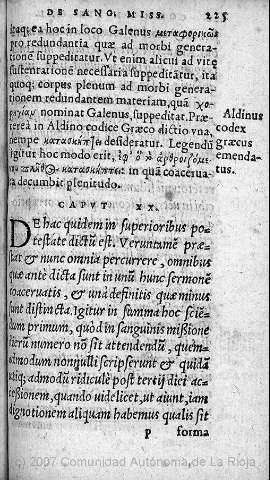 DE SANG. MISS. 225
itaq; ea hoc in loco Galenus μεταφορικῶς
pro redundantia quæ ad morbi genera-
tionē suppeditatur. Vt enim alicui ad vitę
sustentationē necessaria suppeditātur, ita
quoq; corpus plenum ad morbi genera-
tionem redundantem materiam, quā χο-
ρηγίαν nominat Galenus, suppeditat. Præ-
terea in Aldino codice Græco dictio vna,
nempe κατασκήψῃ desideratur. Legendū
igitur hoc modo erit,
πλῆθος κατασκήπτει: in quā coacerua-
ta decumbit plenitudo.
Aldinus
codex
græcus
emenda-
tus.
CAPVT IX.
DE hac quidem in superioribus po-
testate dictū est. Veruntamē præ-
stat & nunc omnia percurrere, omnibus
quæ ante dicta sunt in unū hunc sermonē
coaceruatis, & unà definitis quæ minus
sunt distincta. Igitur in summa hoc sciē-
dum primum, quòd in sanguinis missione
dierū numero nō sit attendendū, quem-
admodum nonnulli scripserunt & quidā
aliq; admodū ridiculè post tertij diei ac-
cessionem, quando uidelicet, ut aiunt, iam
dignotionem aliquam habemus qualis sit
P forma
(c) 2007 Comunidad Autónoma de La Rioja